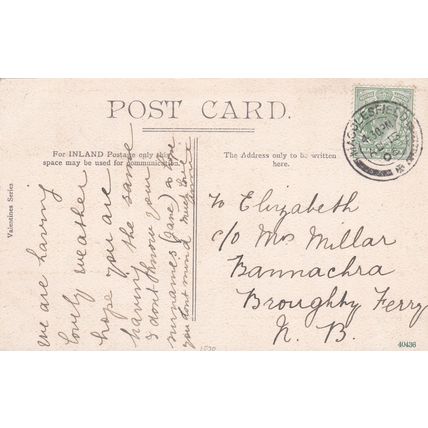 POST CARD.
For INLAND Postage only this
space may be used for communication.
The Address only to be written
here.
Valentines Series
We are having
lovely weather
hope you are
having the same
& dont throw your
surnames (Jane) as
you dont mind Much Love
To Elizabeth
c/o Mrs Millar
Bannachra
Broughty Ferry
N. B.
MACCLESFIELD
40436